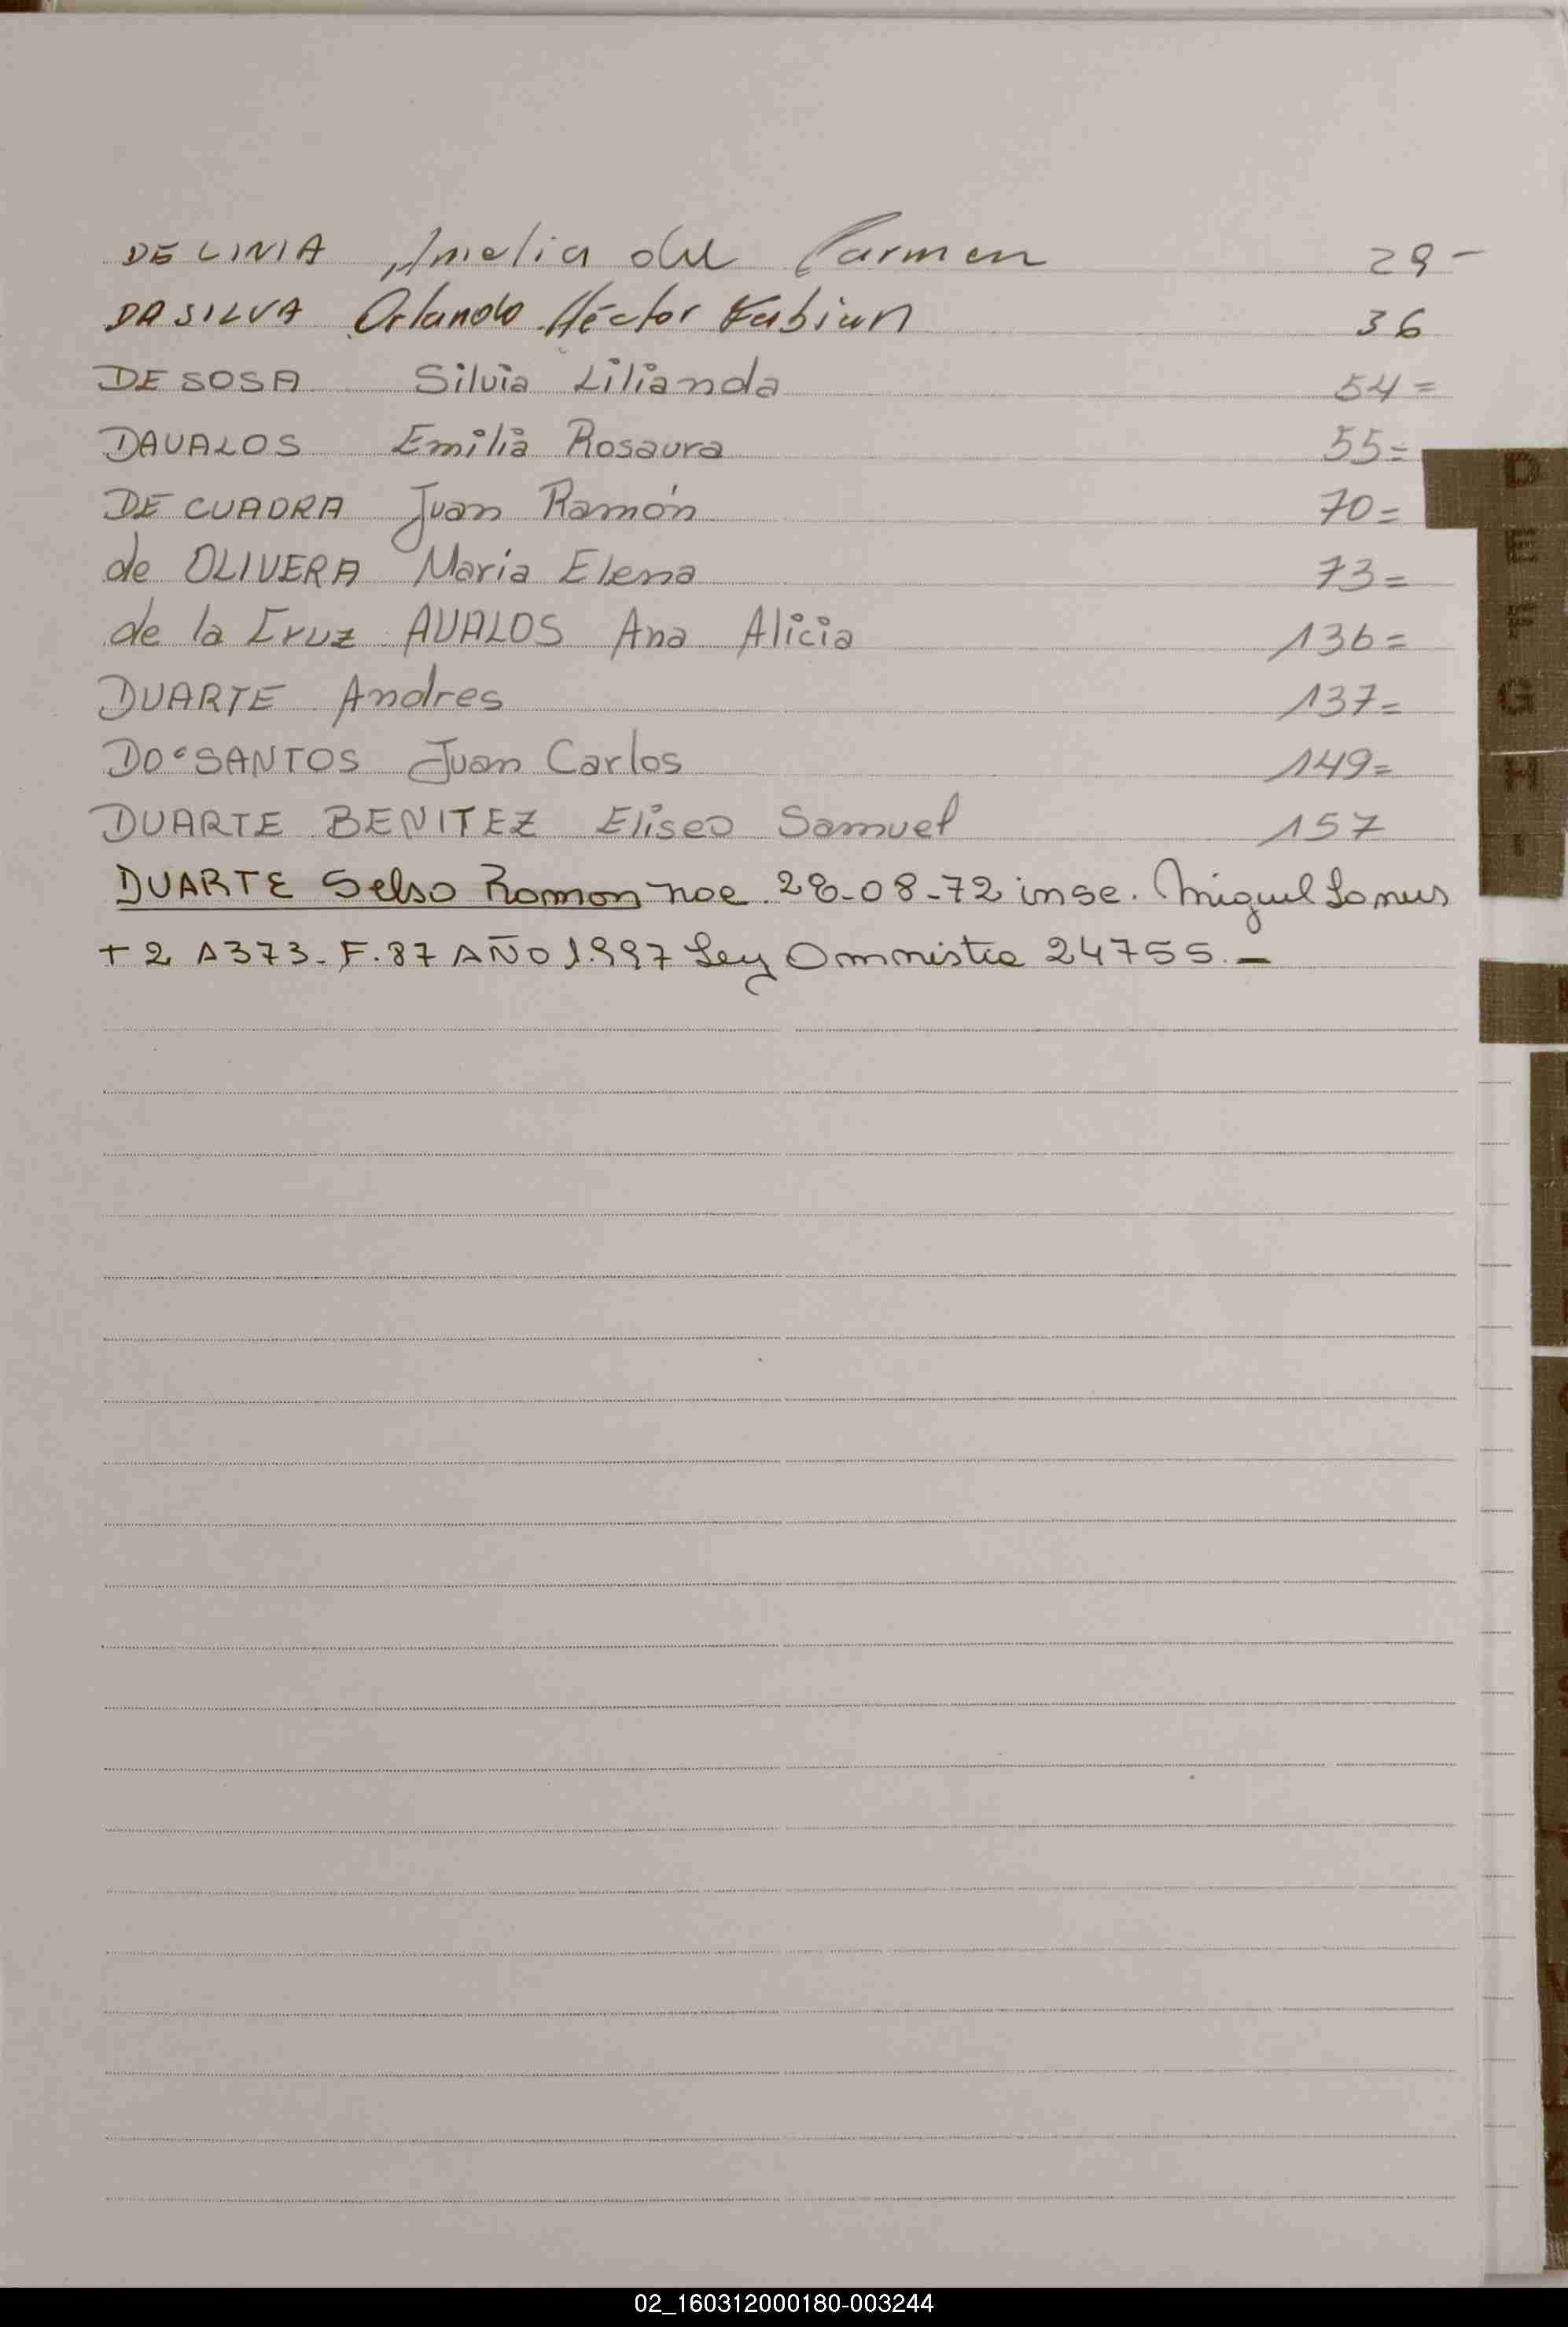 DE LINIA Amelia del Carmen 29-
DA SILVA Orlando Héctor Fabian 36
DE SOSA Silvia Lilianda 54=
DAVALOS Emilia Rosaura 55=
DE CUADRA Juan Ramón 70=
de OLIVERA Maria Elena 73=
de la Cruz AVALOS Ana Alicia 136=
DUARTE Andres 137=
DO SANTOS Juan Carlos 149=
DUARTE BENITEZ Eliseo Samuel 157
DUARTE Selso Ramon nac. 28-08-72 insc. Miguel Lanus
T 2 A373- F.87 AÑO 1.997 Ley Omnistia 24755.-
D
E
F
G
H
I
02_160312000180-003244